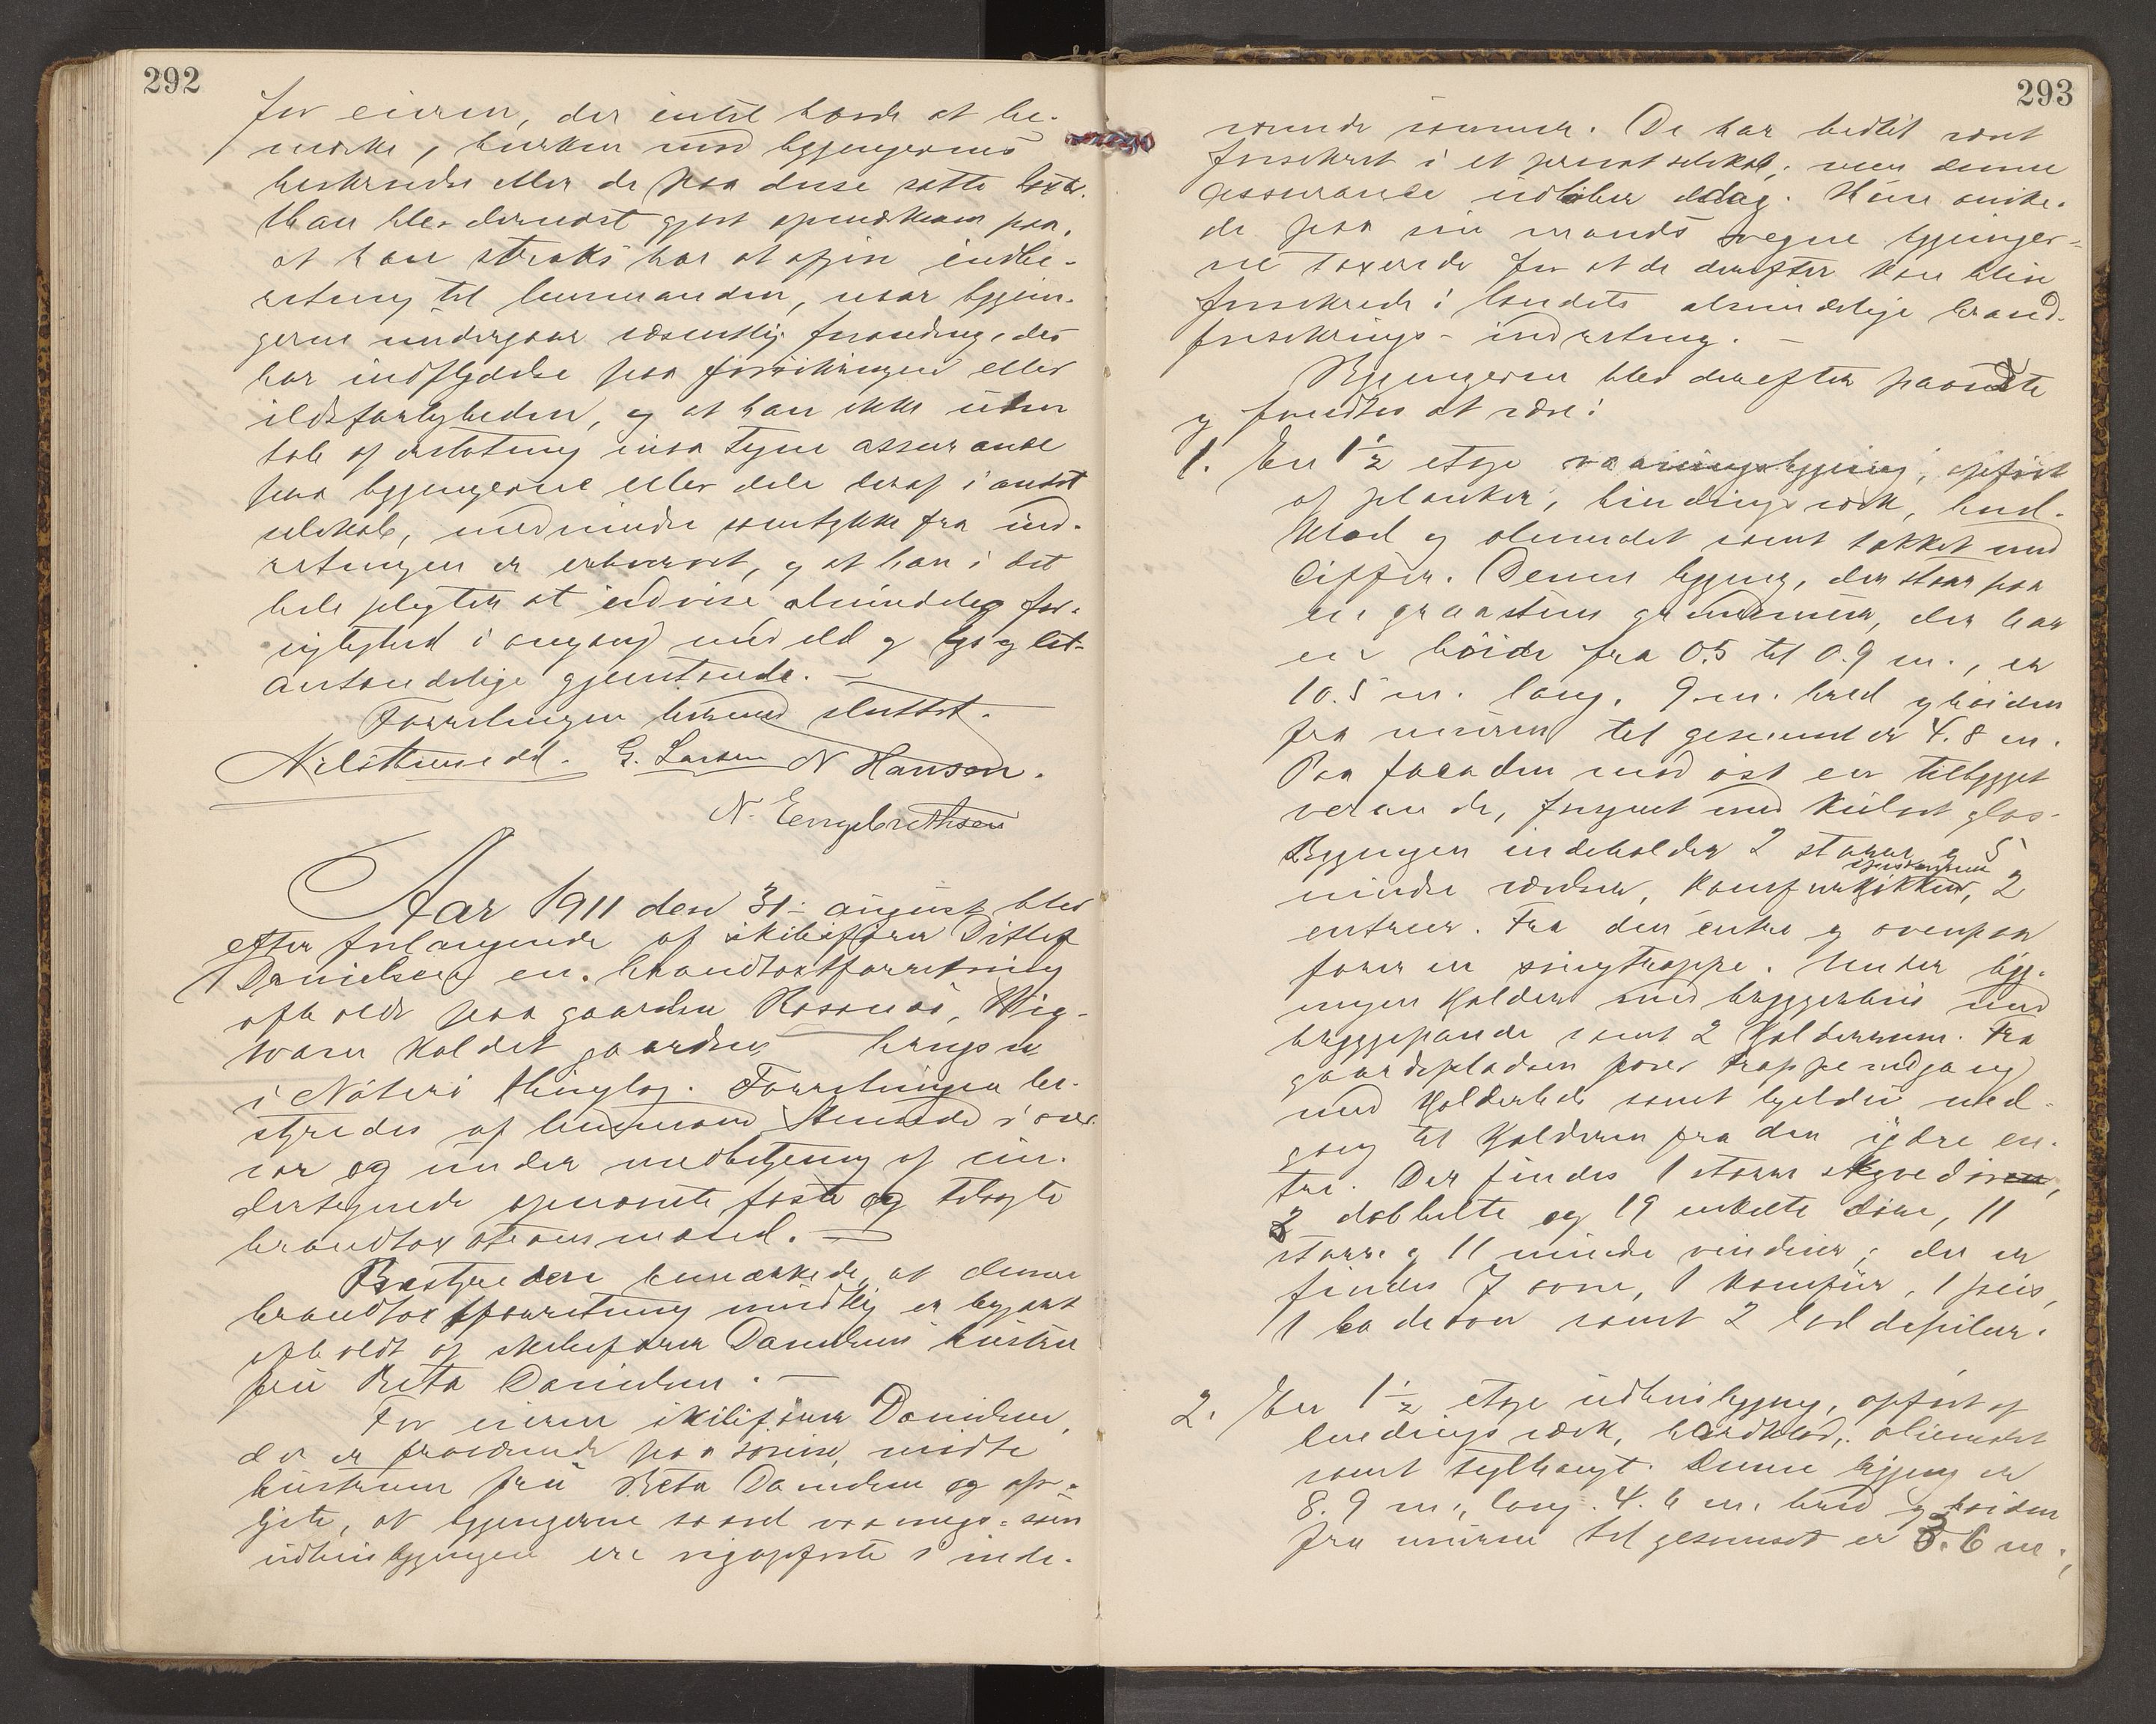 292
for eieren, der intet havde at be-
mærke, hverken mod bygningernes
beskrivelse eller de paa disse satte taxter.
Han blev dernæst gjort opmærksom paa,
at han straks har at afgive indbe-
retning til lensmanden, naar bygnin-
gerne undergaar væsentlig forandring, der
har indflydelse paa forsikringen eller
ildsfarligheden, og at han ikke uden
tab af erstatning maa tegne assurance
paa bygningerne eller dele deraf i andet
selskab, medmindre samtykke fra ind-
retningen er erhvervet, og at han i det
hele pligter at udvise almindelig for-
sigtighed i omgang med ild og lys og let-
antændelige gjenstande. —
Forretningen hermed sluttet.
G. Larsen N Hansen.
N. Engebrethsen
Aar 1911 den 31- august blev
efter forlangende af skibsfører Ditlef
Danielsen en brandtaxtforretning
afholdt paa gaarden Rosenes,
kaldet, gaardens brugsn
i Nøterø thinglag. Forretningen be-
styredes af lensmand i over-
vær og under medbetjening af un-
dertegnede opnævnte faste og edsvgte
brandtaxationsmænd. —
Bestyreren bemærkede, at denne
brandtaxtforretning mundtlig er begjært
afholdt af skibsfører Danielsens hustru
fru Beta Danielsen. —
For eieren skibsfører Danielsen,
der er fraværende paa søreise, mødte
hustruen fru Beta Danielsen og op-
lyste, at bygningerne saavel vaanings- som
udhusbygningen ere nyopførte i inde-
293
værende sommer. De har hidtil været
forsikret i et privat selskab; men denne
assurance udløber idag. Hun ønske-
de paa sin mands vegne bygninger-
ne taxerede for at de derefter kan blive
forsikrede i landets almindelige brand-
forsikrings-indretning. —
Bygningerne blev derefter paavidste
og fandtes at være:
1. En 1½ etage vaaningsbygning, opført
af planker, bindingsværk, bord-
klæd og oliemalet samt tækket med
Eiffer. Denne bygning, der staar paa
en graastens grundmur, der har
en høide fra 0.5 til 0.9 m., er
10.5 m. lang, 9 m. bred og høiden
fra muren til gesimset er 4.8 m.
Paa facaden mod øst en tilbygget
veranda, forsynet med kulørt glas.
Bygningen indeholder 2 større og 5
mindre værelser, komfurkjøkken, spiskammer, 2
entreer. Fra den entre og ovenpaa
fører en svingtrappe. Under byg-
ningen kjælder med bryggerhus med
bryggepande samt 2 kjælderrum. Fra
gaardspladsen fører trappenedgang
med kjælderhals samt ligeledes ned-
gang til kjælderen fra den ydre en-
tre. Der findes 1 større skyvedør,
2 dobbelte og 19 enkelte døre, 11
større og 11 mindre vinduer; der er
findes 7 ovne, 1 komfur, 1 peis,
1 badeovn samt 2 lod depiber.
2. En 1½ etage udhusbygning, opført af
bindingsværk, bordklæd, oliemalet
samt teglhængt. Denne bygning er
8.9 m. lang, 4.6 m. bred og høiden
fra muren til gesimset er 3.6 m.,